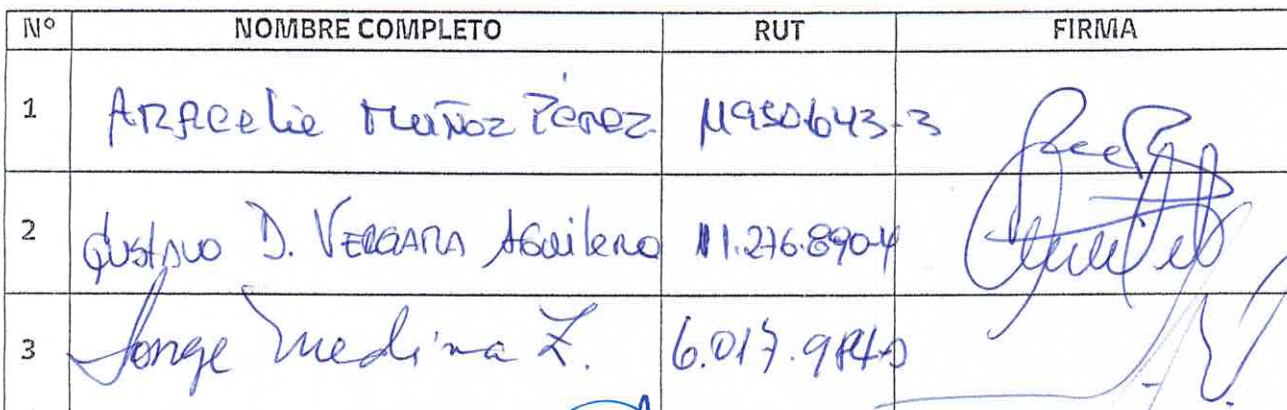 Nº NOMBRE COMPLETO RUT FIRMA
1 Aracelie Muñoz Pérez 11950.643-3
2 Gustavo D. Vergara Aguilera 11.276.890-4
3 Jorge Medina Z.